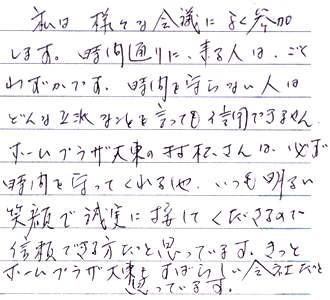 私は様々な会議によく参加
します。時間通りに、来る人は、ごく
わずかです。時間を守らない人は
どんな立派なことを言っても信用できません。
ホームプラザ大東の村松さんは、必ず
時間を守ってくれるし、いつも明るい
笑顔で誠実に接してくださるので
信頼できる方だと思っています。きっと
ホームプラザ大東もすばらしい会社だと
思っています。